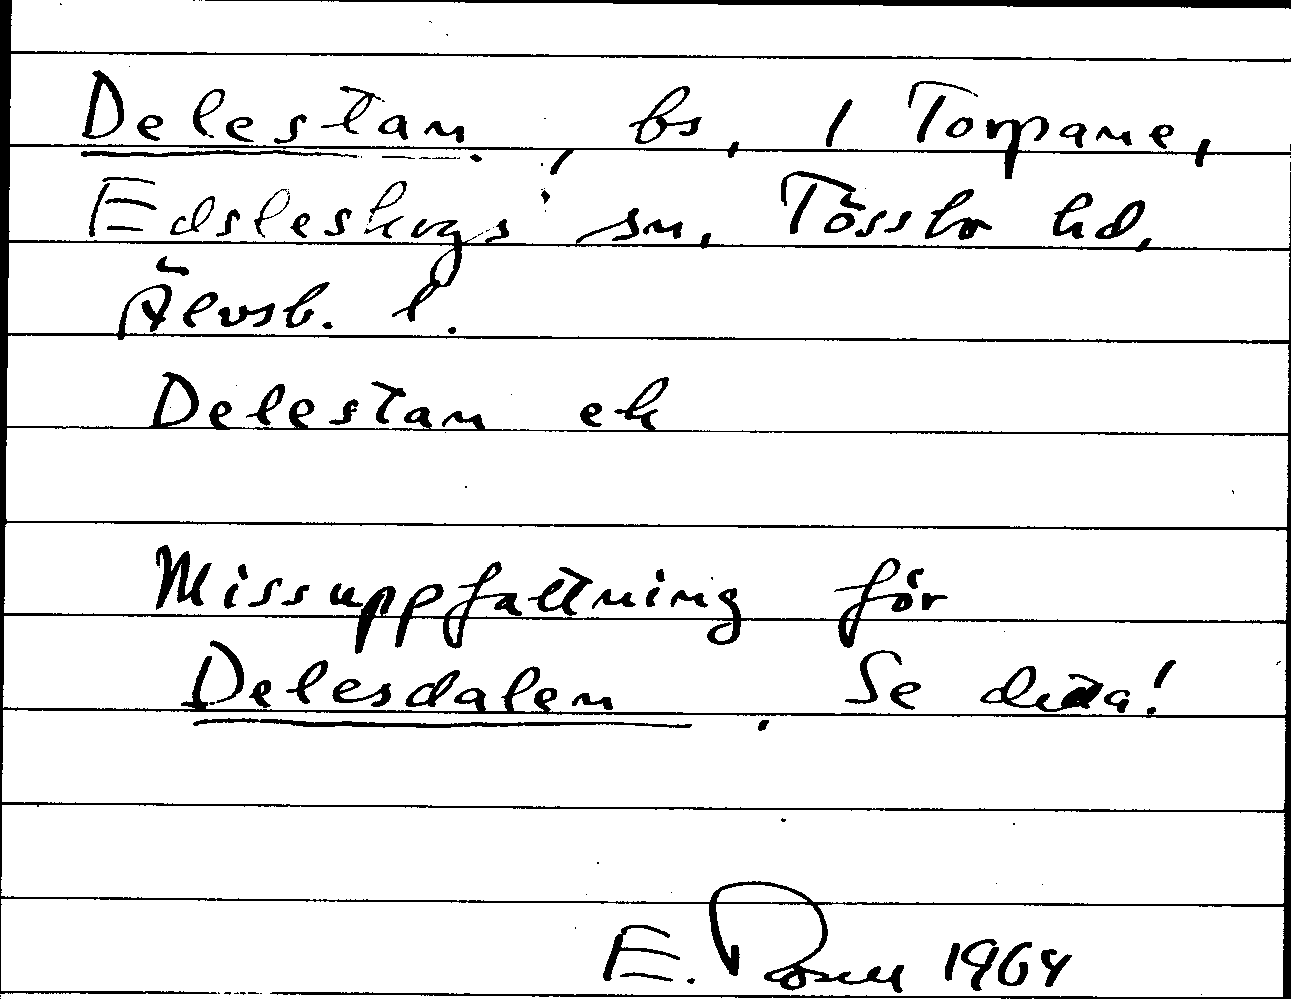 Delestan, bs, 1 Torpane,
Edsleskogs sn, Tössbo hd,
Älvsb. l.
Delestan ek
Missuppfattning för
Delesdalen. Se detta!
E. 1964